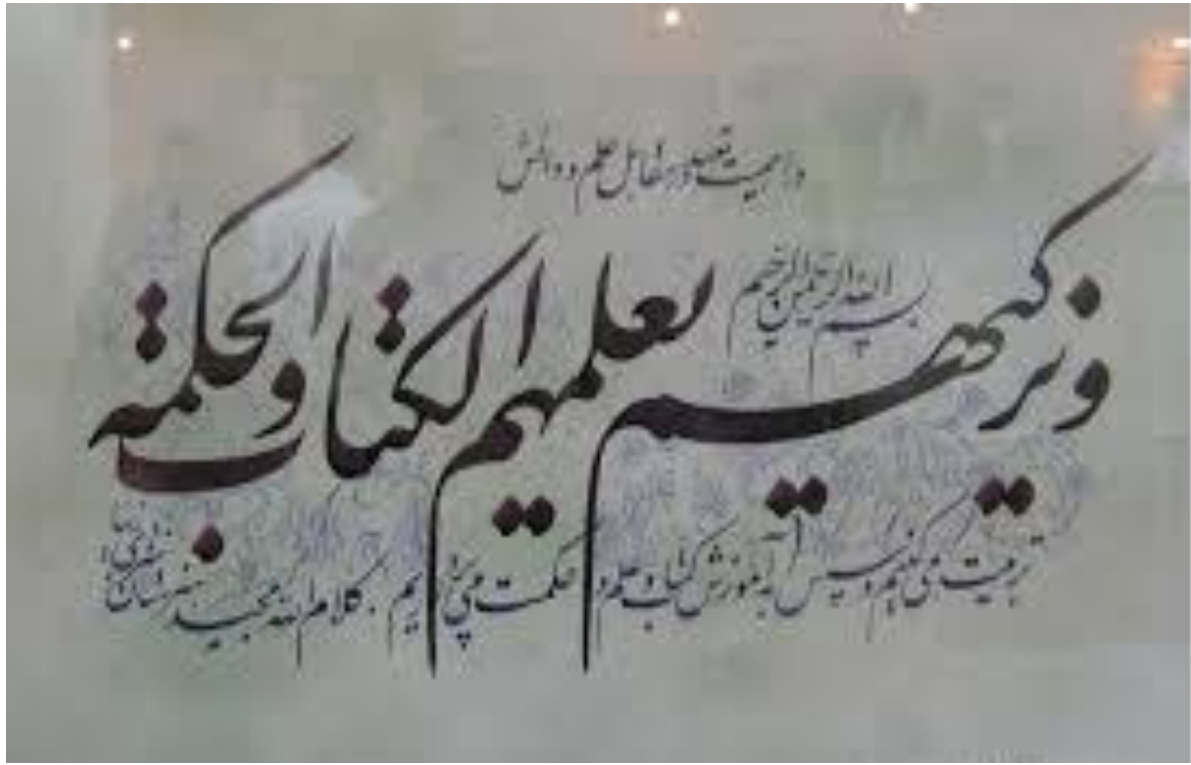 در اهمیت تعهد در مقابل علم و دانش
بسم الله الرحمن الرحیم
و یزکیهم یعلمهم الکتاب والحکمة
تربیت می‌کنیم و سپس به آموزش کتاب و علم و حکمت می‌پردازیم. کلام الله مجید